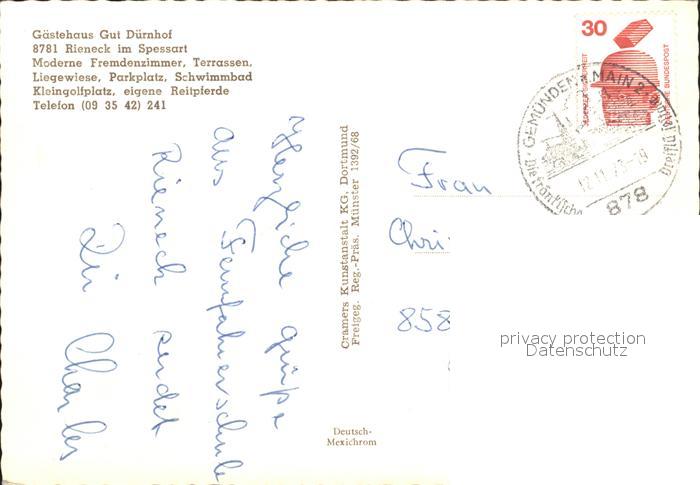 Gästehaus Gut Dürnhof
8781 Rieneck im Spessart
Moderne Fremdenzimmer, Terrassen,
Liegewiese, Parkplatz, Schwimmbad
Kleingolfplatz, eigene Reitpferde
Telefon (09 35 42) 241
Herzliche Grüße
aus Fernfahrerschule
Rieneck sendet
Dir Charles
Cramers Kunstanstalt KG, Dortmund
Freigeg. Reg.-Präs. Münster 1392/68
Deutsch-
Mexichrom
30
DEUTSCHE BUNDESPOST
GEMÜNDEN A. MAIN 2
Die fränkische
Dreiflü
878
Frau
Chri
858
privacy protection
Datenschutz